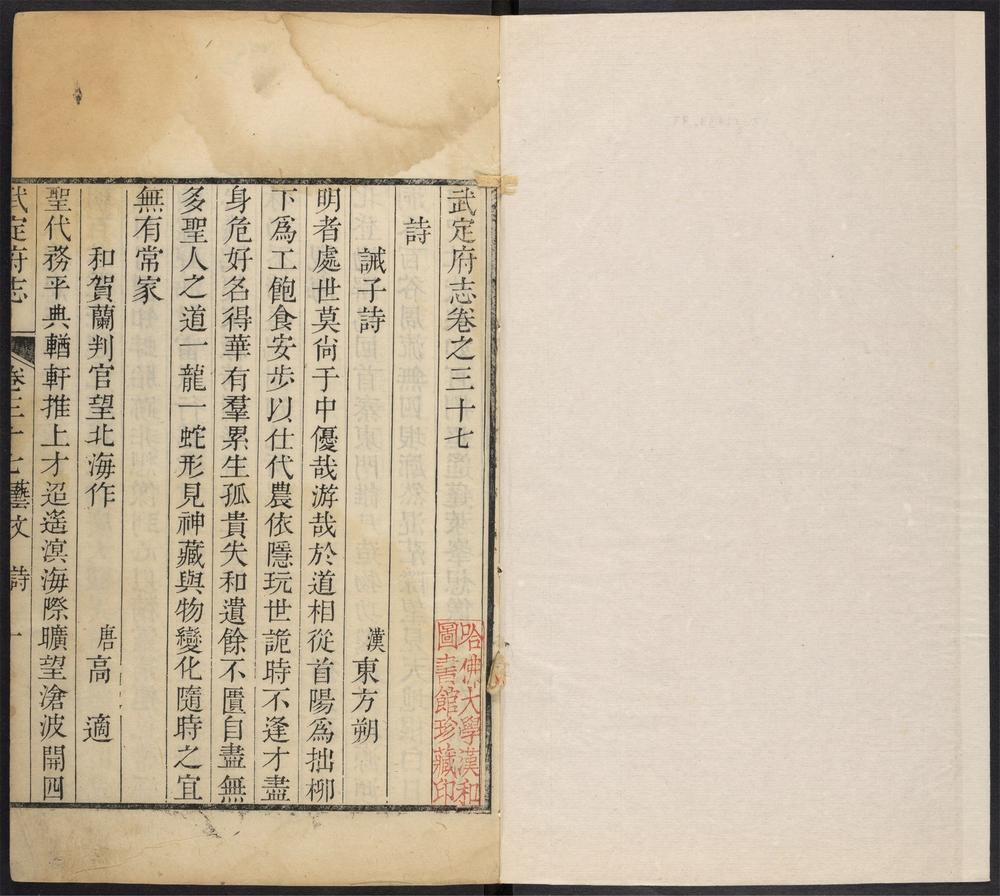 武定府志卷之三十七
詩
誡子詩 漢 東方朔
明者處世莫尚于中優哉游哉於道相從首陽爲拙柳
下爲工飽食安步以仕代農依隱玩世詭時不逢才盡
身危好名得華有羣累生孤貴失和遺餘不匱自盡無
多聖人之道一龍一蛇形見神藏與物變化隨時之宜
無有常家
和賀蘭判官望北海作 唐 高適
聖代務平典輶軒推上才迢遥溟海際曠望滄波開四
武定府志 卷三十七 藝文 詩 一
哈佛大學漢和
圖書館珍藏印